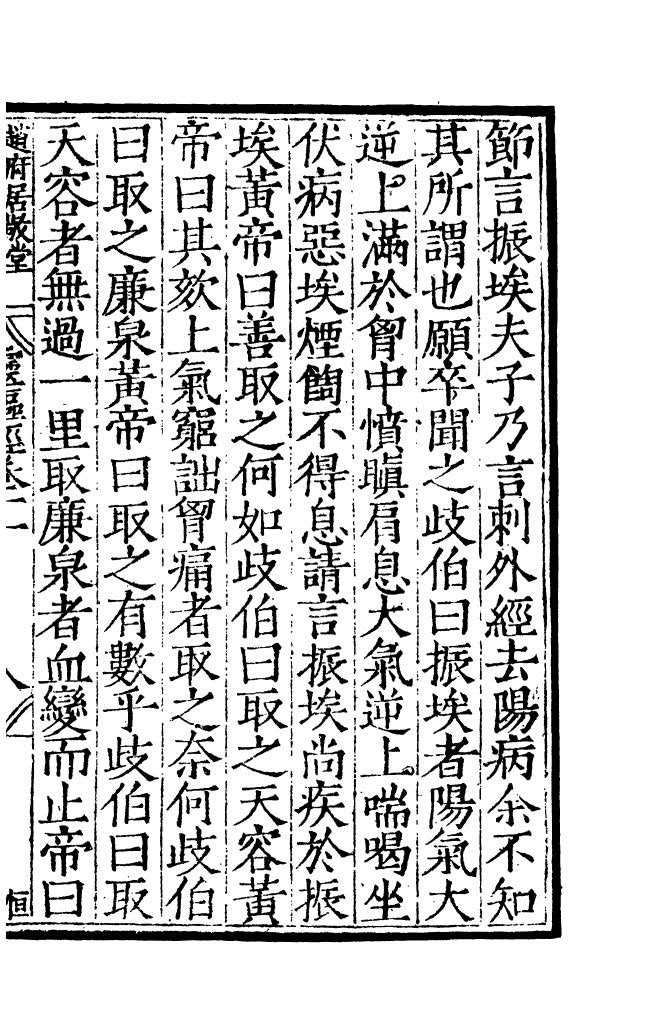 節言振埃夫子乃言刺外經去陽病余不知
其所謂也願卒聞之歧伯曰振埃者陽氣大
逆上滿於胷中憤瞋肩息大氣逆上喘喝坐
伏病惡埃煙䭇不得息請言振埃尚疾於振
埃黃帝曰善取之何如歧伯曰取之天容黃
帝曰其欬上氣窮詘胷痛者取之奈何歧伯
曰取之廉泉黃帝曰取之有數乎歧伯曰取
天容者無過一里取廉泉者血變而止帝曰
趙府居敬堂
靈樞經卷十一
恒